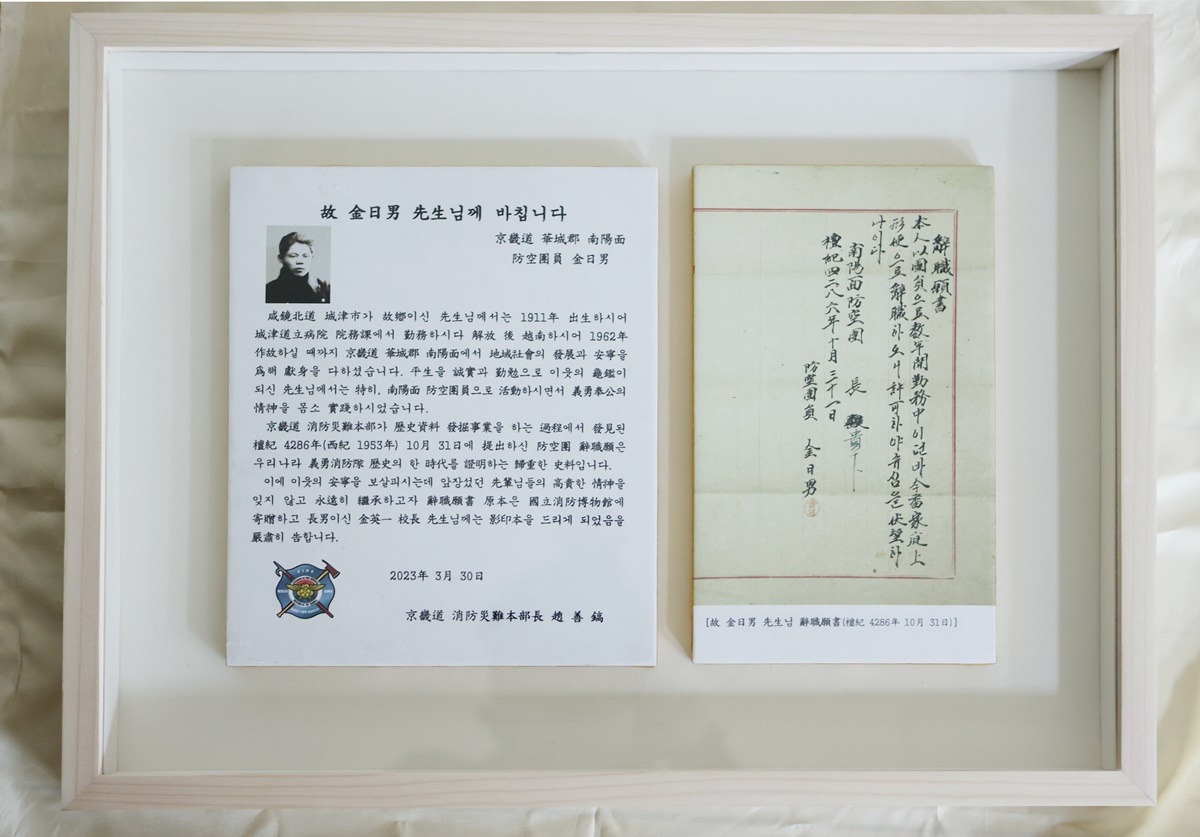 故 金日男 先生님께 바칩니다
京畿道 華城郡 南陽面
防空團員 金日男
咸鏡北道 城津市가 故鄕이신 先生님께서는 1911年 出生하시어
城津道立病院 院務課에서 勤務하시다 解放 後 越南하시어 1962年
作故하실 때까지 京畿道 華城郡 南陽面에서 地域社會의 發展과 安寧을
爲해 獻身을 다하셨습니다. 平生을 誠實과 勤勉으로 이웃의 龜鑑이
되신 先生님께서는 特히, 南陽面 防空團員으로 活動하시면서 義勇奉公의
情神을 몸소 實踐하시었습니다.
京畿道 消防災難本部가 歷史資料 發掘事業을 하는 過程에서 發見된
檀紀 4286年(西紀 1953年) 10月 31日에 提出하신 防空團 辭職願은
우리나라 義勇消防隊 歷史의 한 時代를 證明하는 歸重한 史料입니다.
이에 이웃의 安寧을 보살피시는데 앞장섰던 先輩님들의 高貴한 情神을
잊지 않고 永遠히 繼承하고자 辭職願書 原本은 國立消防博物館에
寄贈하고 長男이신 金英一 校長 先生님께는 影印本을 드리게 되었음을
嚴肅히 告합니다.
2023年 3月 30日
京畿道 消防災難本部長 趙 善 鎬
辭職願書
本人以團員으로數年間勤務中이던바今番家庭上
形便으로辭職하오니許可하야주심을伏望하
나이다
南陽面防空團 長
檀紀四二八六年十月三十一日
防空團員 金日男
[故 金日男 先生님 辭職願書(檀紀 4286年 10月 31日)]